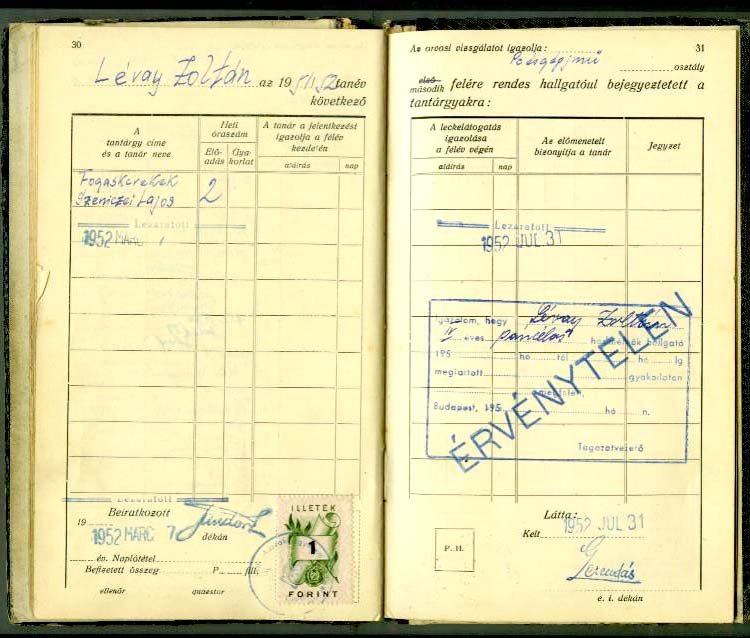 30
Lévay Zoltán az 1951/52 tanév
következő
A
tantárgy címe
és a tanár neve
Heti
óraszám
Elő-
adás
Gya-
korlat
A tanár a jelentkezést
igazolja a félév
kezdetén
aláírás
nap
Fogaskerekek
Szeniczei Lajos
2
Lezáratott
1952 MARC 7
Lezáratott
Beíratkozott
19
1952 MARC 7.
dékán
én. Naplótétel
Befizetett összeg P. fill.
ellenőr quaestor
ILLETÉK
1
FORINT
31
Az orvosi vizsgálatot igazolja:
osztály
első
második felére rendes hallgatóul bejegyeztetett a
tantárgyakra:
A leckelátogatás
igazolása
a félév végén
aláírás
nap
Az előmenetelt
bizonyítja a tanár
Jegyzet
Lezáratott
1952 JUL 31
Igazolom, hogy Lévay Zoltán
IV éves hallgató
195 hó tól hó ig
megtartott gyakorlaton
megfelelt,
Budapest, 195 hó n.
Tagozatvezető
ÉRVÉNYTELEN
Látta:
Kelt 1952 JUL 31
P. H.
e. i. dékán